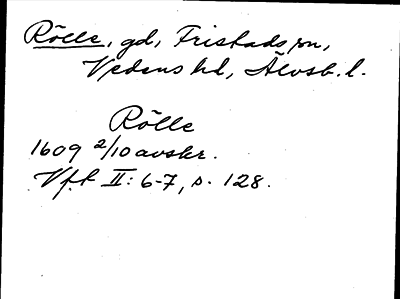 Rölle, gd, Fristads sn,
Vedens hd, Älvsb. l.
Rölle
1609 2/10 avskr.
Vft II: 6-7, s. 128.